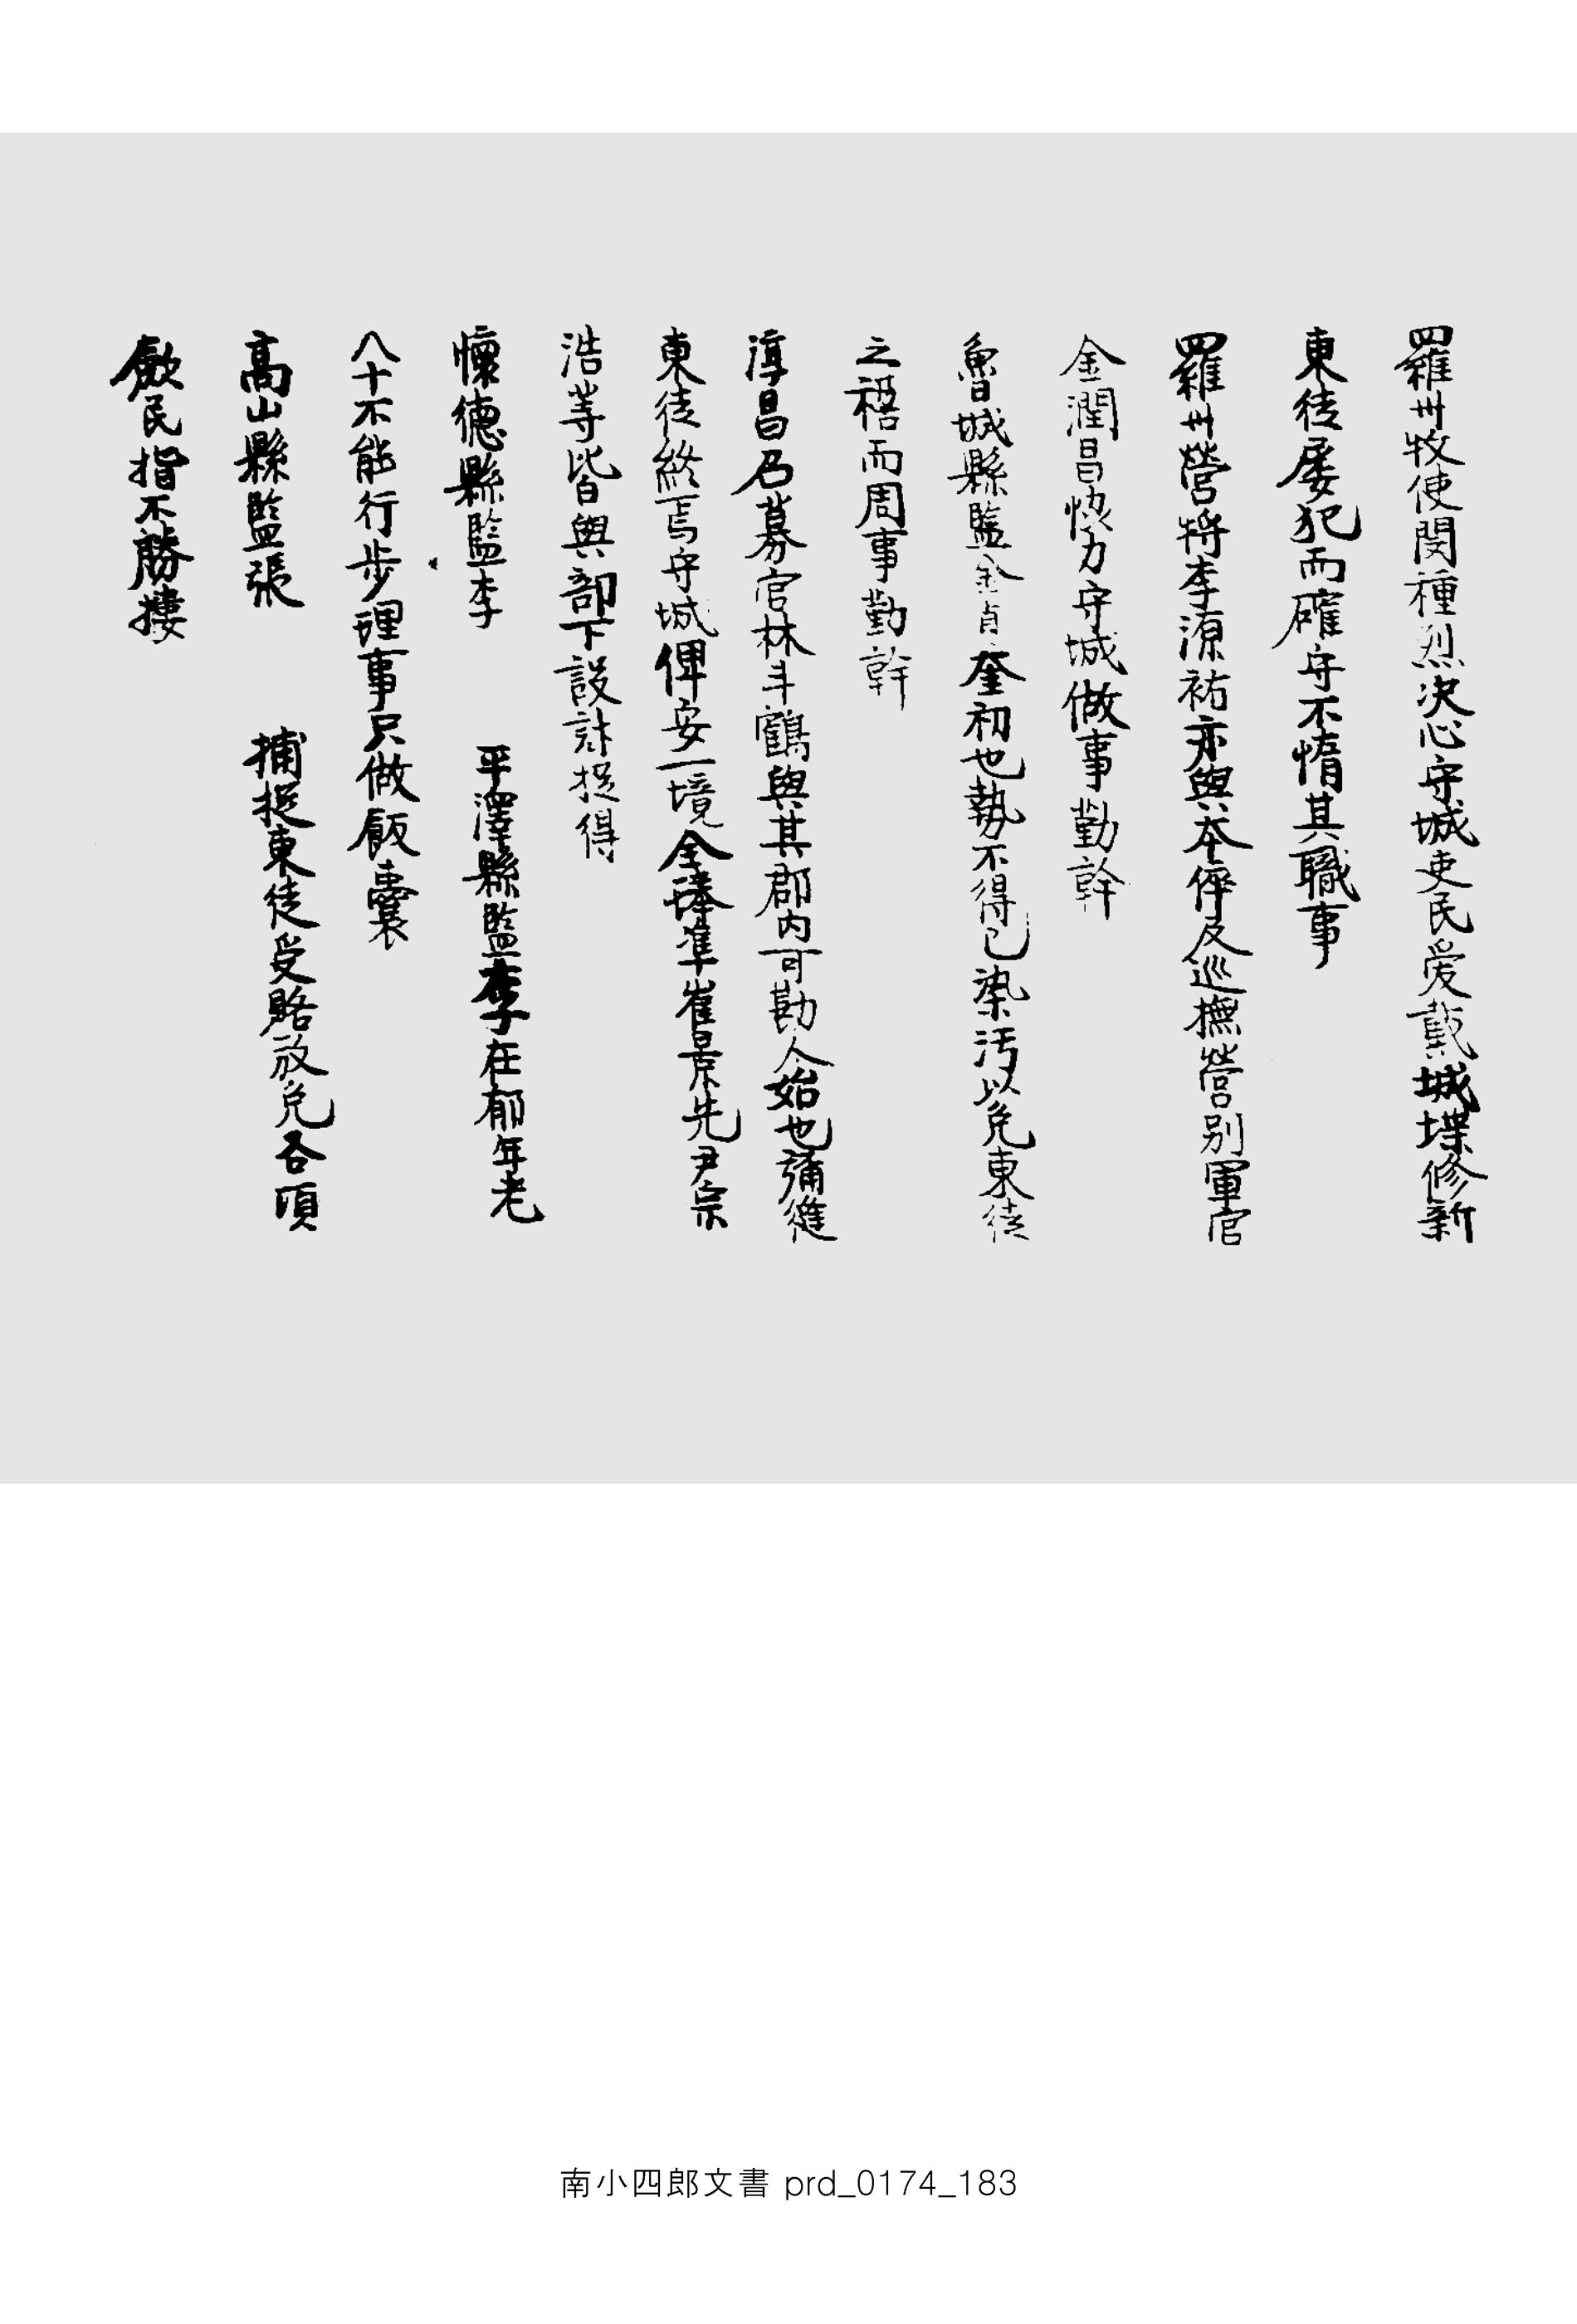 羅州牧使閔種烈決心守城吏民愛戴城堞修新
東徒屡犯而確守不惰其職事
羅州營將李源祐亦與本倅及巡撫營別軍官
金潤昌恊力守城做事勤幹
魯城縣監金貞奎初也勢不得已染汚以免東徒
之禍而周事勤幹
淳昌召募官林斗鶴與其郡內可勘人始也彌縫
東徒終焉守城俾安一境全琫準崔景先尹宗
浩等皆與部下設計捉得
懷德縣監李 平澤縣監李在郁年老
八十不能行步理事只做飯囊
高山縣監張 捕捉東徒受賂放免各項
歛民指不勝搂
南小四郎文書 prd_0174_183